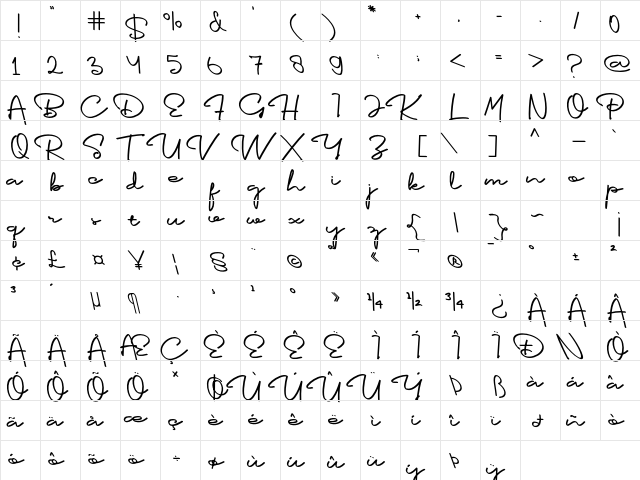 ! " # $ % & ' ( ) * + , - . / 0
1 2 3 4 5 6 7 8 9 : ; < = > ? @
A B C D E F G H I J K L M N O P
Q R S T U V W X Y Z [ \ ] ^ _ `
a b c d e f g h i j k l m n o p
q r s t u v w x y z { | } ~ ¡
¢ £ ¤ ¥ ¦ § ¨ © « ¬ ® ¯ ° ± ²
³ ´ µ ¶ · ¸ ¹ º » ¼ ½ ¾ ¿ À Á Â
Ã Ä Å Æ Ç È É Ê Ë Ì Í Î Ï Ð Ñ Ò
Ó Ô Õ Ö × Ø Ù Ú Û Ü Ý Þ ß à á â
ã ä å æ ç è é ê ë ì í î ï ð ñ ò
ó ô õ ö ÷ ø ù ú û ü ý þ ÿ